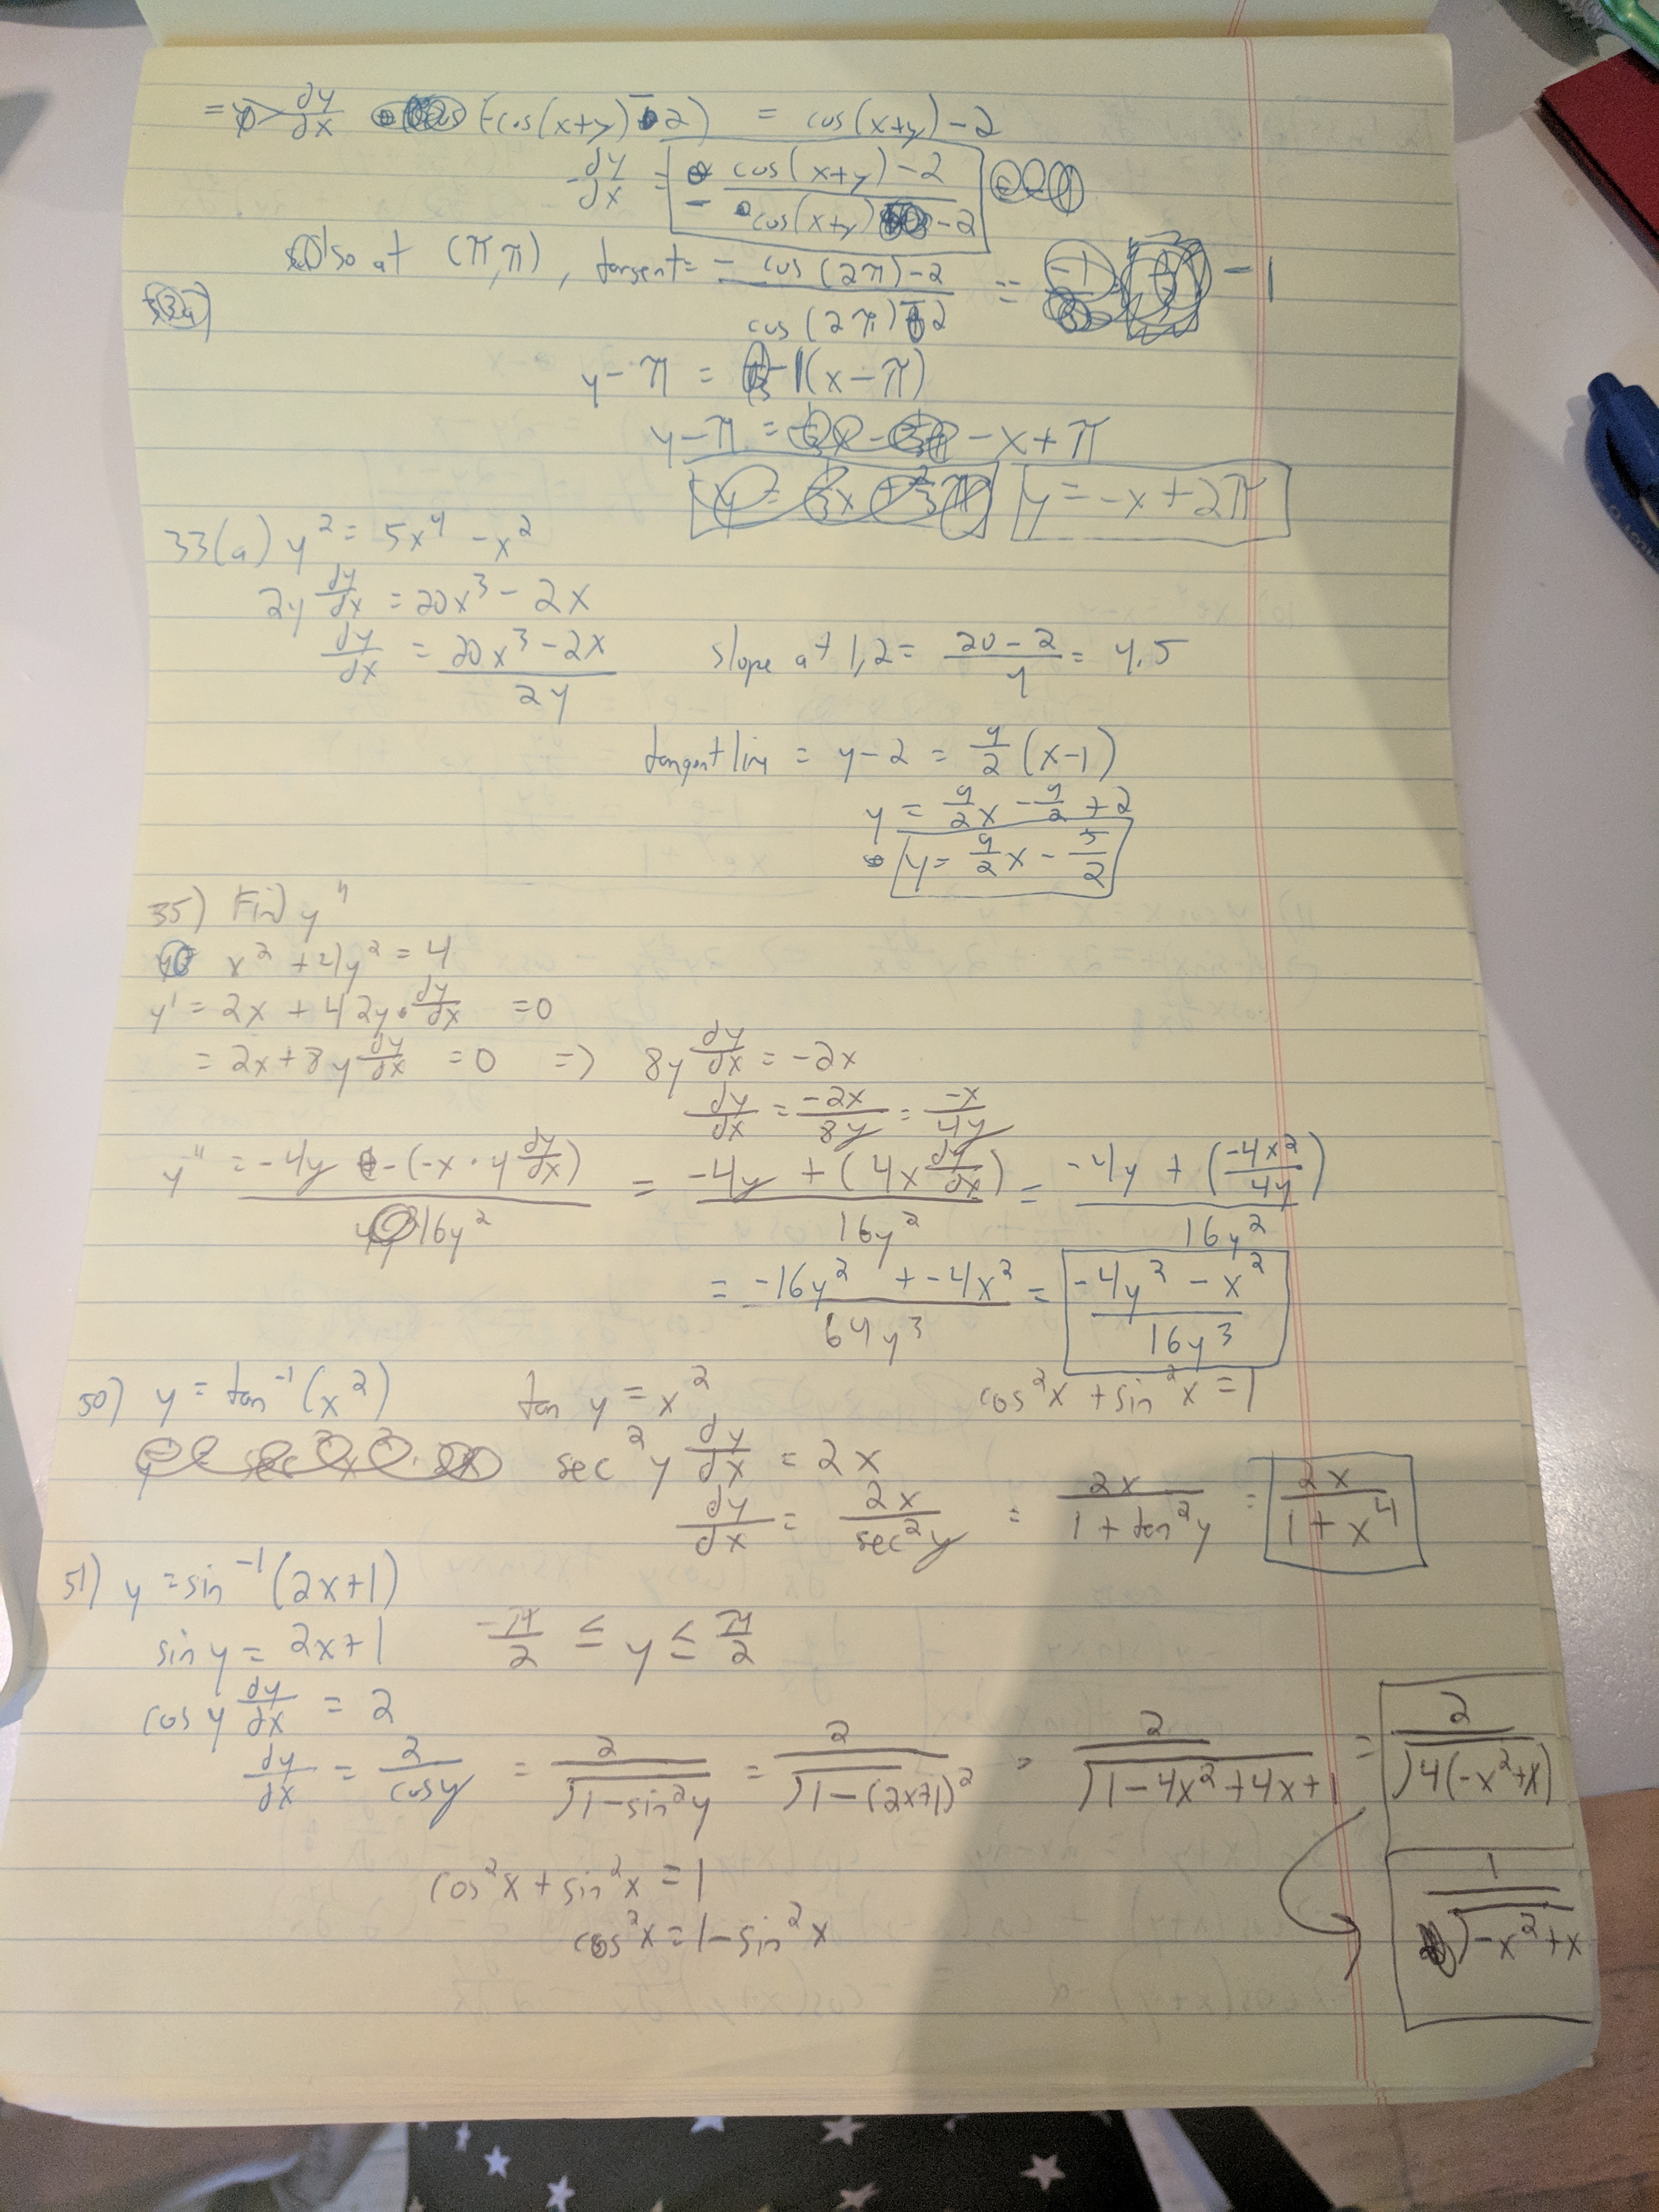 = dy/dx (-cos(x+y) - 2) = cos(x+y) - 2
dy/dx = - (cos(x+y) - 2)/(cos(x+y) - 2)
also at (π,π), tangent = - (cos(2π) - 2)/(cos(2π) - 2) = -1
y - π = -1(x - π)
y - π = -x + π
y = -x + 2π
33(a) y² = 5x⁴ - x²
2y dy/dx = 20x³ - 2x
dy/dx = (20x³ - 2x)/2y   slope at 1,2 = (20 - 2)/4 = 4.5
tangent line = y - 2 = 9/2 (x - 1)
y = 9/2 x - 9/2 + 2
y = 9/2 x - 5/2
35) Find y"
x² + 4y² = 4
y' = 2x + 4 2y · dy/dx = 0
= 2x + 8y dy/dx = 0 => 8y dy/dx = -2x
dy/dx = -2x/8y = -x/4y
y" = (-4y - (-x · 4 dy/dx))/16y² = (-4y + (4x dy/dx))/16y² = (-4y + (-4x²/4y))/16y²
= (-16y² + -4x²)/64y³ = (-4y² - x²)/16y³
50) y = tan⁻¹(x²)   tan y = x²   cos²x + sin²x = 1
sec²y dy/dx = 2x
dy/dx = 2x/sec²y = 2x/(1 + tan²y) = 2x/(1 + x⁴)
51) y = sin⁻¹(2x+1)
sin y = 2x+1   -π/2 ≤ y ≤ π/2
cos y dy/dx = 2
dy/dx = 2/cos y = 2/√(1-sin²y) = 2/√(1-(2x+1)²) = 2/√(1-4x²+4x+1) = 2/√(4(-x²+x))
cos²x + sin²x = 1
cos²x = 1 - sin²x
1/√(-x²+x)